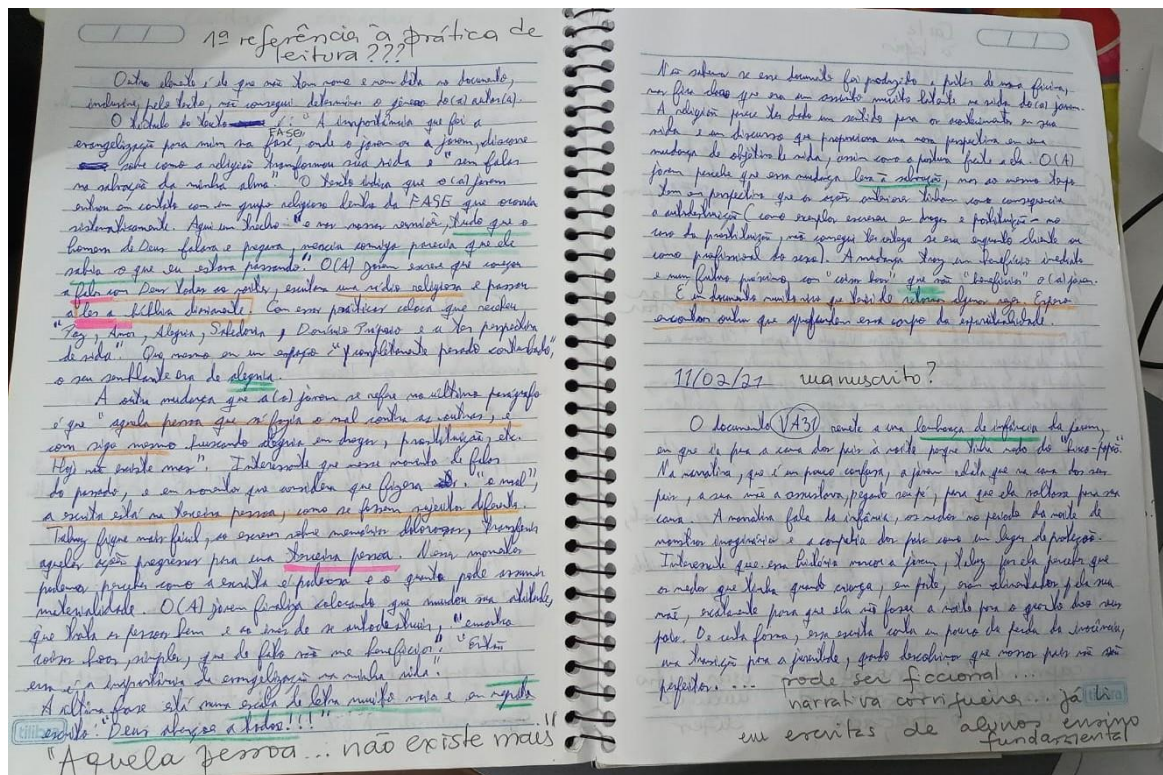 1ª referência à prática de
leitura???
Outro elemento é de que não tem nome e nem data no documento,
inclusive, pelo texto, não consegui determinar o gênero do(a) autor(a).
O título do texto é: "A importância que foi a
evangelização para mim na FASE", onde o jovem ou a jovem, discorre
FASE
sobre como a religião transformou sua vida e "sem falar
na salvação da minha alma". O texto indica que o(a) jovem
entrou em contato com um grupo religioso dentro da FASE que ocorria
sistematicamente. Aqui um trecho: "e nas nossas reuniões, tudo que o
homem de Deus falava e pregava, mencia comigo parecia que ele
sabia o que eu estava passando." O(A) jovem escreve que começou
a falar com Deus todas as noites, escutava uma rádio religiosa e passou
a ler a bíblia diariamente. Com essas práticas coloca que recebeu
"Paz, Amor, Alegria, Sabedoria, Domínio Próprio e a ter perspectiva
de vida". Que mesmo em um espaço "completamente pesado conturbado",
o seu semblante era de alegria.
A outra mudança que a(o) jovem se refere no último parágrafo
é que "aquela pessoa que só fazia o mal contra as outras, e
com sigo mesmo buscando alegria em drogas, prostituição, etc.
Hoj não existe mas". Interessante que nesse momento de falar
do passado, e em momentos que considera que fizera "o mal",
a escrita está na terceira pessoa, como se fossem sujeitos diferentes.
Talvez fique mais fácil, ao escrever sobre memórias dolorosas, transferir
aquelas ações pregressas para uma terceira pessoa. Nesses momentos
podemos perceber como a escrita é poderosa e o quanto pode assumir
materialidade. O(A) jovem finaliza colocando que mudou sua atitude,
que trata as pessoas bem e ao invés de se autodestruir, "
coisas boas, simples, que de fato são me benefícios". "Então
essa é a importância da evangelização na minha vida."
A última frase está numa escala de letra muito maior e em negrito
escrito: "Deus abençoe a todos!!!"
"Aquela pessoa... não existe mais"
Não sabemos se esse documento foi produzido a partir de uma oficina,
mas fica claro que era um assunto muito latente na vida do(a) jovem.
A religião parece ter dado um sentido para os acontecimentos em sua
vida e um discurso que proporciona uma nova perspectiva em uma
mudança de objetivo de vida, assim como a postura frente a ela. O(A)
jovem percebe que essa mudança leva à salvação, mas ao mesmo tempo
tem em perspectiva que as ações anteriores tinham como consequência
a autodestruição (como exemplos escreveu em drogas e prostituição - no
caso da prostituição, não consegui ter certeza se era enquanto cliente ou
como profissional do sexo). A mudança traz um benefício imediato
e num futuro próximo com "coisas boas" que são "benefícios" a(o) jovem.
É um documento muito rico que terei de retornar algumas vezes. Espero
encontrar outros que aprofundem esse corpo da espiritualidade.
11/02/21 manuscrito?
O documento VA31 remete a uma lembrança de infância da jovem,
em que ia para a cama dos pais à noite porque tinha medo do "bixo-papão".
Na narrativa, que é um pouco confusa, a jovem relata que na cama dos seus
pais, a sua mãe a assustava, pegando seu pé, para que ela voltasse para sua
cama. A narrativa fala da infância, os medos no período da noite de
monstros imaginários e a companhia dos pais como um lugar de proteção.
Interessante que essa história marcou a jovem, talvez por ela perceber que
os medos que tinha quando criança, em parte, eram alimentados pela sua
mãe, exatamente para que ela não fosse a noite para o quarto dos seus
pais. De certa forma, essa escrita conta um pouco da perda da inocência,
uma transição para a juventude, quando descobrimos que nossos pais não são
perfeitos. ... pode ser ficcional...
narrativa corriqueira... já li
em escritas de alunos ensino
fundamental
tilibra
tilibra